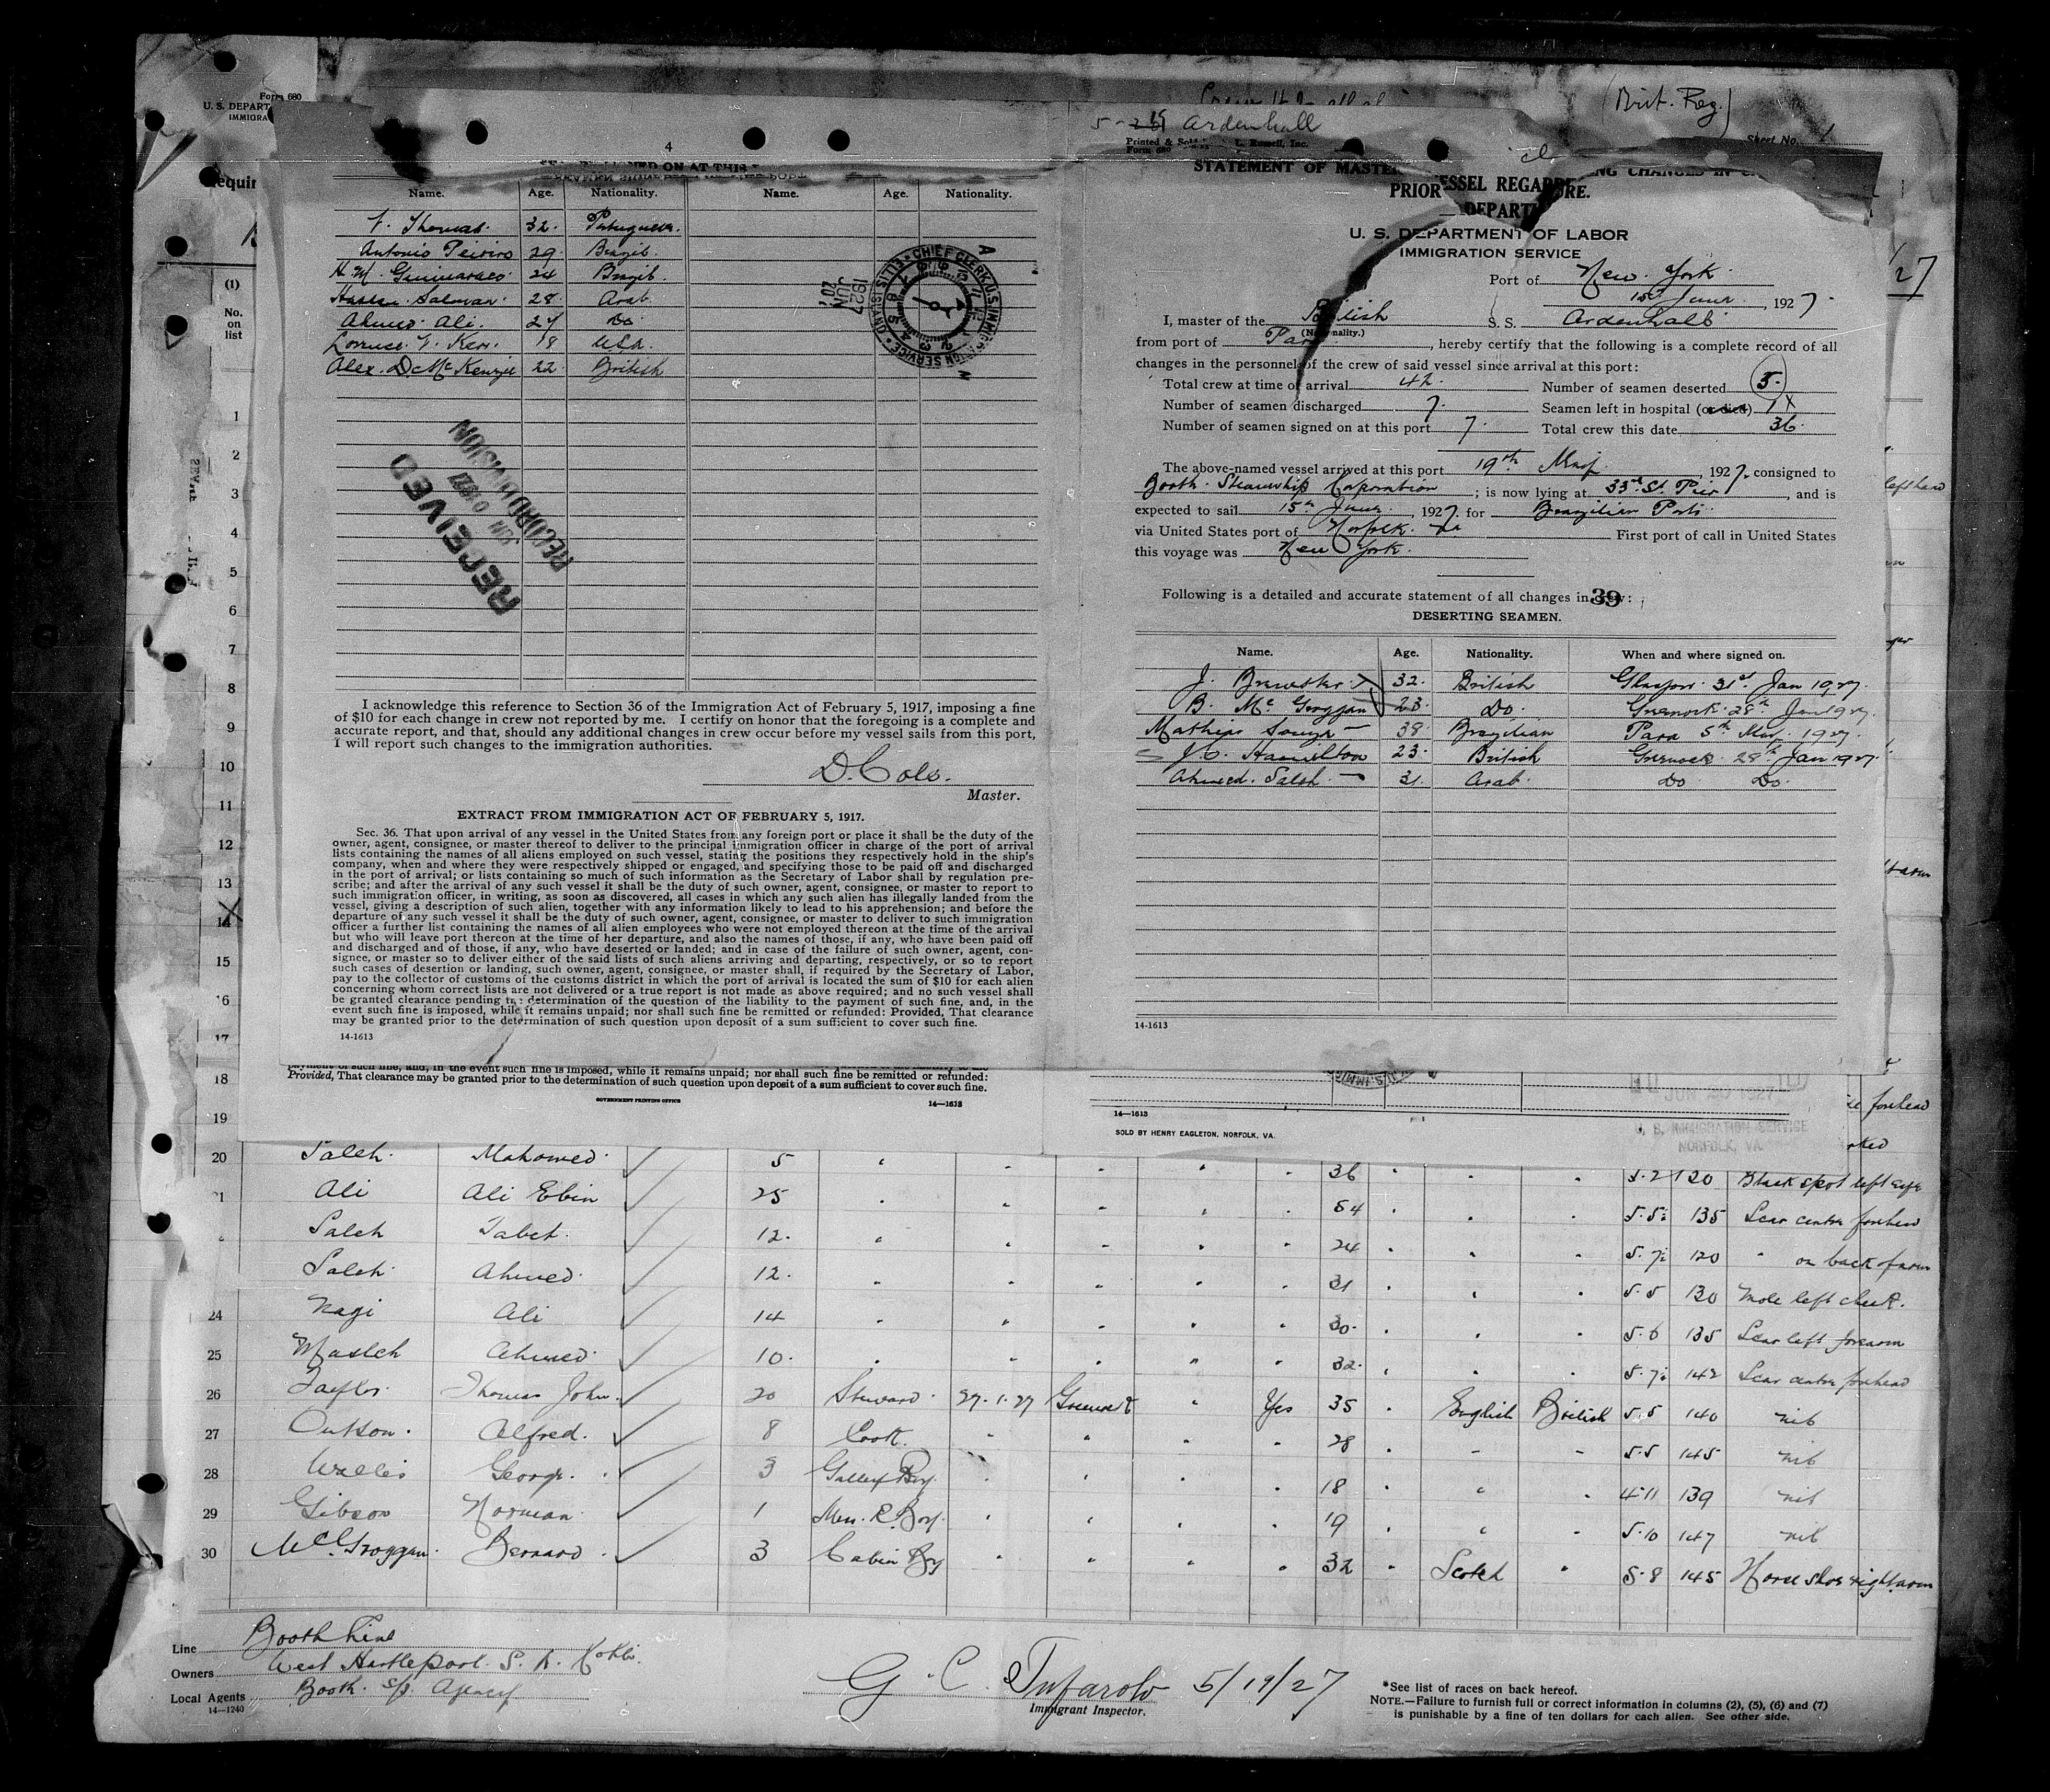 Form 680
U. S. DEPART
IMMIGRA
(Brit. Reg.)
5- Ardenhall
Sheet No. 1
4
Printed & Sold L. Rowell, Inc.
Form 680
STATEMENT OF MASTER VESSEL REGARDING CHANGES IN
PRIOR DEPARTURE.
Requir
(1)
No.
on
list
27
Name. Age. Nationality. Name. Age. Nationality.
Thomas. 32. Portuguese.
Antonio 29. Brazil.
H. M. 24 Brazil.
Salman. 28. Arab.
Ahmed Ali. 27 Do
Ken. 18 USA.
Alex. D. McKenzie 22. British
CHIEF CLERK U.S. IMMIGRATION SERVICE • ELLIS ISLAND
1927
JUN
20
RECEIVED
JUN 1927
RECORD DIVISION
I acknowledge this reference to Section 36 of the Immigration Act of February 5, 1917, imposing a fine
of $10 for each change in crew not reported by me. I certify on honor that the foregoing is a complete and
accurate report, and that, should any additional changes in crew occur before my vessel sails from this port,
I will report such changes to the immigration authorities.
D. Cole.
Master.
EXTRACT FROM IMMIGRATION ACT OF FEBRUARY 5, 1917.
Sec. 36. That upon arrival of any vessel in the United States from any foreign port or place it shall be the duty of the
owner, agent, consignee, or master thereof to deliver to the principal immigration officer in charge of the port of arrival
lists containing the names of all aliens employed on such vessel, stating the positions they respectively hold in the ship's
company, when and where they were respectively shipped or engaged, and specifying those to be paid off and discharged
in the port of arrival; or lists containing so much of such information as the Secretary of Labor shall by regulation pre-
scribe; and after the arrival of any such vessel it shall be the duty of such owner, agent, consignee, or master to report to
such immigration officer, in writing, as soon as discovered, all cases in which any such alien has illegally landed from the
vessel, giving a description of such alien, together with any information likely to lead to his apprehension; and before the
departure of any such vessel it shall be the duty of such owner, agent, consignee, or master to deliver to such immigration
officer a further list containing the names of all alien employees who were not employed thereon at the time of the arrival
but who will leave port thereon at the time of her departure, and also the names of those, if any, who have been paid off
and discharged and of those, if any, who have deserted or landed; and in case of the failure of such owner, agent, con-
signee, or master so to deliver either of the said lists of such aliens arriving and departing, respectively, or so to report
such cases of desertion or landing, such owner, agent, consignee, or master shall, if required by the Secretary of Labor,
pay to the collector of customs of the customs district in which the port of arrival is located the sum of $10 for each alien
concerning whom correct lists are not delivered or a true report is not made as above required; and no such vessel shall
be granted clearance pending the determination of the question of the liability to the payment of such fine, and, in the
event such fine is imposed, while it remains unpaid; nor shall such fine be remitted or refunded: Provided, That clearance
may be granted prior to the determination of such question upon deposit of a sum sufficient to cover such fine.
14-1613
U. S. DEPARTMENT OF LABOR
IMMIGRATION SERVICE
Port of New York
15th June, 1927.
I, master of the British S. S. Ardenhall
(Nationality.)
from port of Para, hereby certify that the following is a complete record of all
changes in the personnel of the crew of said vessel since arrival at this port:
Total crew at time of arrival 42. Number of seamen deserted 5.
Number of seamen discharged 7. Seamen left in hospital (or died) 1 x
Number of seamen signed on at this port 7. Total crew this date 36.
The above-named vessel arrived at this port 19th May, 1927, consigned to
Booth Steamship Corporation; is now lying at 33rd St. Pier, and is
expected to sail 15th June, 1927, for Brazilian Ports.
via United States port of Norfolk. Va First port of call in United States
this voyage was New York.
Following is a detailed and accurate statement of all changes in crew:
39
DESERTING SEAMEN.
Name. Age. Nationality. When and where signed on.
J. Brewster 32. British Glasgow 31st Jan 1927.
B. McGroggan 23. Do. Greenock 28th Jan 1927.
Mathias Souza 38 Brazilian Para 5th May 1927.
J. C. Hamilton 23. British Greenock 28th Jan 1927.
Ahmed Saleh 31. Arab. Do Do.
14-1613
1
2
3
4
5
6
7
8
9
10
11
12
13
14
15
16
17
18
19
left hand
payment of such fine, and, in the event such fine is imposed, while it remains unpaid; nor shall such fine be remitted or refunded:
Provided, That clearance may be granted prior to the determination of such question upon deposit of a sum sufficient to cover such fine.
GOVERNMENT PRINTING OFFICE 14—1613
14—1613
SOLD BY HENRY EAGLETON, NORFOLK, VA.
JUN 20 1927
U. S. IMMIGRATION SERVICE
NORFOLK, VA.
forehead
20 Saleh Mahomed 5 36 5-2 120 Black spot left eye
21 Ali Ali Ebin 25 54 5.5½ 135 Scar centre forehead
Saleh Tabet 12. 24 5.7½ 120 " on back of arm
Saleh Ahmed 12. 31 5.5 130 Mole left cheek.
24 Nagi Ali 14 30 5.6 135 Scar left forearm
25 Masleh Ahmed 10. 32 5.7½ 142 Scar centre forehead
26 Taylor Thomas John 20 Steward 27.1.27 Greenock " Yes 35 English British 5.5 140 nil
27 Outson Alfred. 8 Cook. 28 5.5 145 nil
28 Wallis George. 3 Galley Boy. 18 4.11 139 nil
29 Gibson Norman 1 Mess R. Boy. 19 5.10 147 nil
30 McGroggan Bernard 3 Cabin Boy 32 Scotch 5.8 145 Horse shoe right arm
Line Booth Line
Owners West Hartlepool S. N. Co Ltd.
Local Agents Booth S/S. Agency
14—1240
G. C. Tufarolo 5/19/27
Immigrant Inspector.
*See list of races on back hereof.
NOTE.—Failure to furnish full or correct information in columns (2), (5), (6) and (7)
is punishable by a fine of ten dollars for each alien. See other side.